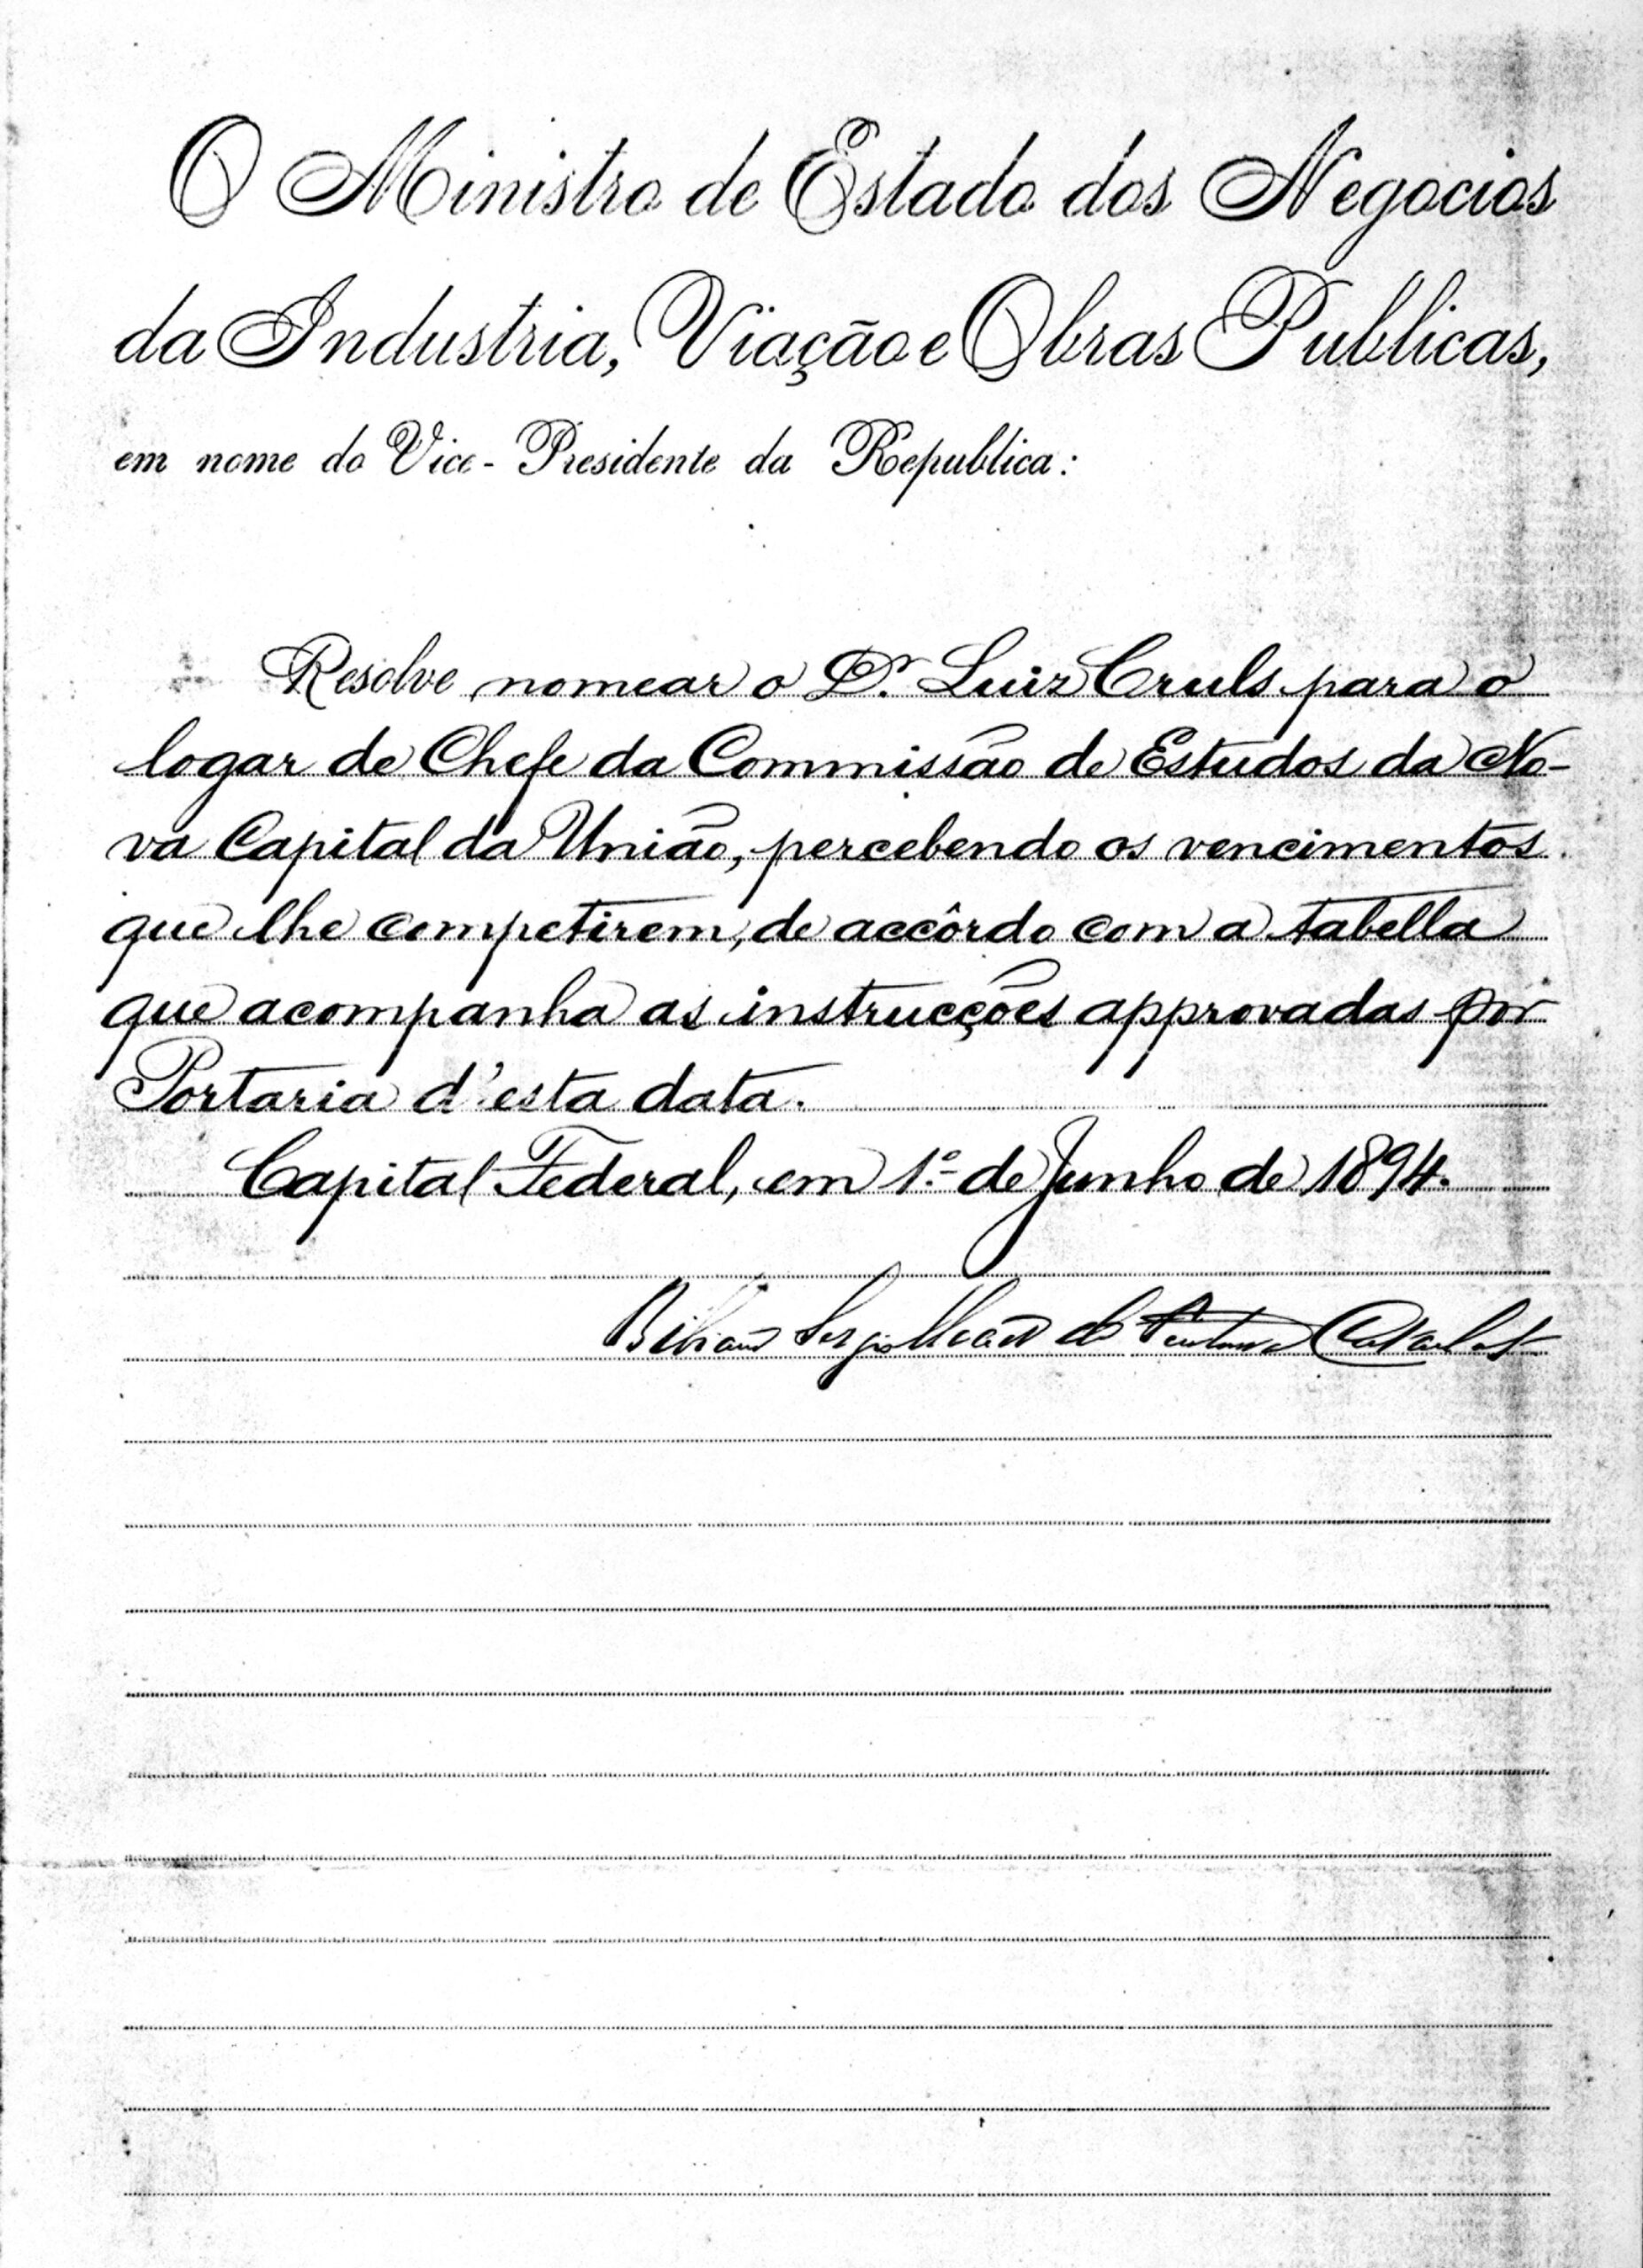 O Ministro de Estado dos Negocios
da Industria, Viação e Obras Publicas,
em nome do Vice-Presidente da Republica:
Resolve nomear o Dr. Luiz Cruls para o
logar de Chefe da Commissão de Estudos da No-
va Capital da União, percebendo os vencimentos
que lhe competirem, de accôrdo com a tabella
que acompanha as instrucções approvadas por
Portaria d'esta data.
Capital Federal, em 1º de Junho de 1894.